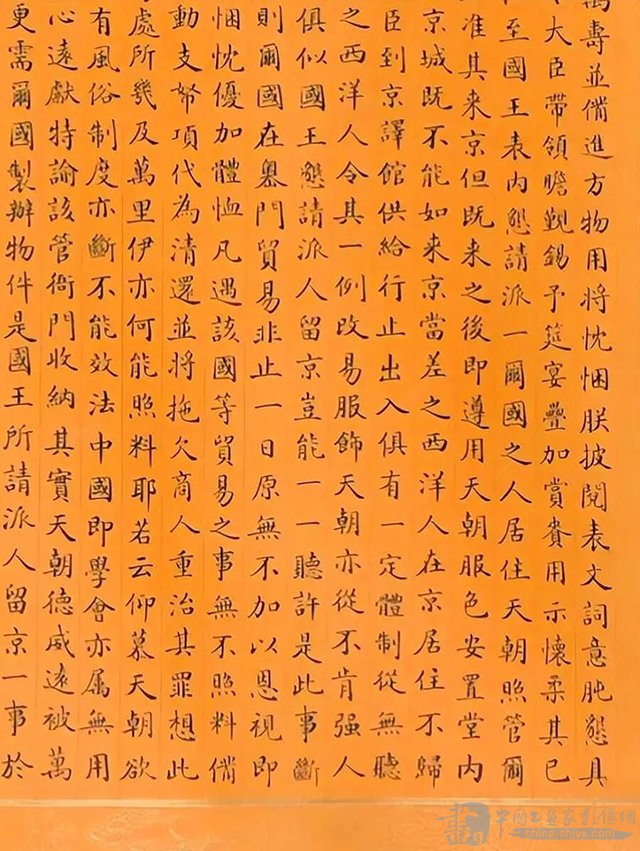 萬壽並俻進方物用将忱悃朕披閲表文詞意肫懇具
大臣帶領瞻覲錫予筵宴疊加賞賚用示懷柔其已
至國王表内懇請派一爾國之人居住天朝照管爾
准其来京但既来之後即遵用天朝服色安置堂内
京城既不能如来京當差之西洋人在京居住不歸
臣到京譯館供給行止出入俱有一定體制從無聽
之西洋人令其一例改易服飾天朝亦從不肯强人
俱似國王懇請派人留京豈能一一聽許是此事斷
則爾國在嶴門貿易非止一日原無不加以恩視即
悃忱優加體恤凡遇該國等貿易之事無不照料俻
動支帑項代為清還並将拖欠商人重治其罪想此
處所幾及萬里伊亦何能照料耶若云仰慕天朝欲
有風俗制度亦斷不能效法中國即學會亦属無用
心遠獻特諭該管衙門收納其實天朝德威遠被萬
更需爾國製辦物件是國王所請派人留京一事於